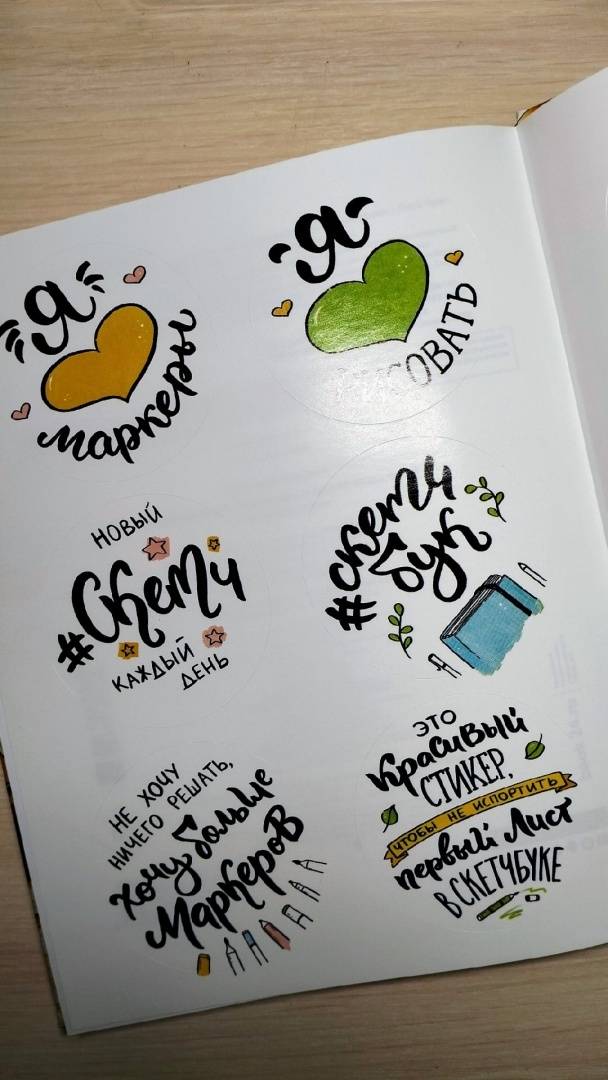 Я
маркеры
Я
РИСОВАТЬ
НОВЫЙ
#Скетч
КАЖДЫЙ
ДЕНЬ
#скетч
бук
НЕ ХОЧУ
НИЧЕГО РЕШАТЬ,
хочу больше
маркеров
ЭТО
красивый
СТИКЕР,
ЧТОБЫ НЕ ИСПОРТИТЬ
первый лист
В СКЕТЧБУКЕ